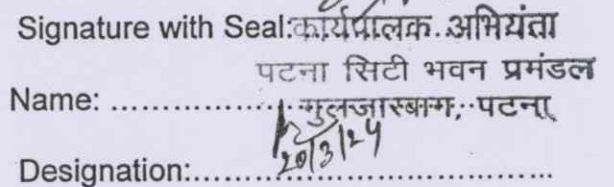 Signature with Seal: कार्यपालक अभियंता
पटना सिटी भवन प्रमंडल
Name: .................. गुलजारबाग, पटना
20/3/24
Designation:..........................................